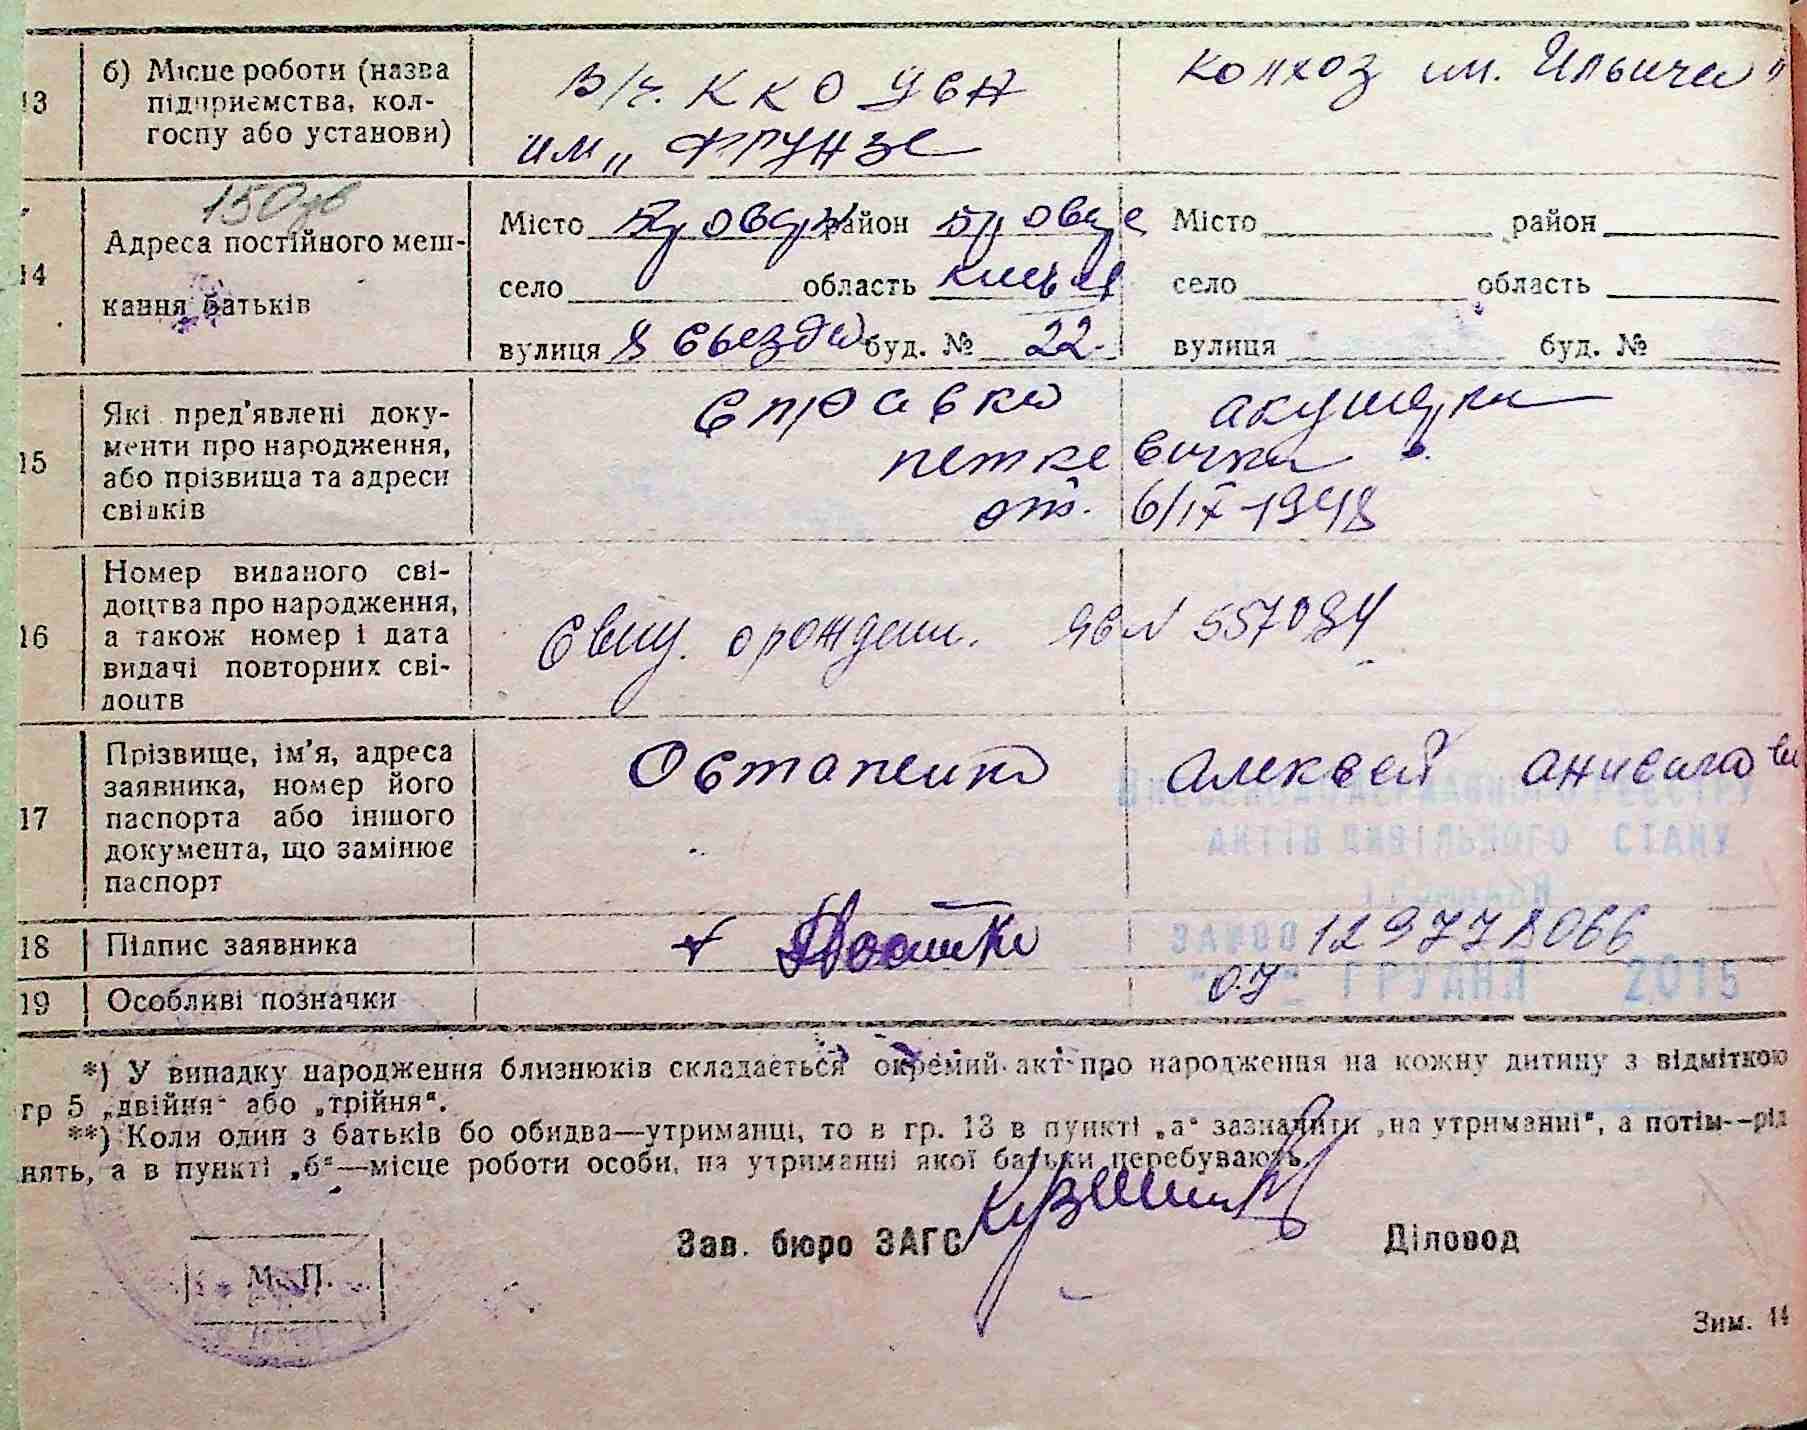 13 б) Місце роботи (назва підприємства, колгоспу або установи)
В/ч. ККО УВД
им „ ФРУНЗЕ
колхоз им. Ильича"
150
14 Адреса постійного мешкання батьків
Місто район
село область
вулиця 8 Сьезда буд. № 22.
Місто район
село область
вулиця буд. №
15 Які пред'явлені документи про народження, або прізвища та адреси свідків
Справка акушерки
петкевички
от. 6/IX-1948
16 Номер виданого свідоцтва про народження, а також номер і дата видачі повторних свідоцтв
о рожден. N 557034
17 Прізвище, ім'я, адреса заявника, номер його паспорта або іншого документа, що замінює паспорт
Остапенко Алексей
ДЕРЖАВНОГО РЕЄСТРУ
АКТІВ ЦИВІЛЬНОГО СТАНУ
18 Підпис заявника
129778066
19 Особливі позначки
07 ГРУДНЯ 2015
*) У випадку народження близнюків складається окремий акт про народження на кожну дитину з відміткою
гр 5 „двійня" або „трійня".
**) Коли один з батьків бо обидва—утриманці, то в гр. 13 в пункті „а" зазначити „на утриманні", а потім--рід
нять, а в пункті „б"—місце роботи особи, на утриманні якої батьки перебувають.
Зав. бюро ЗАГС Діловод
М. П.
Зим. 14